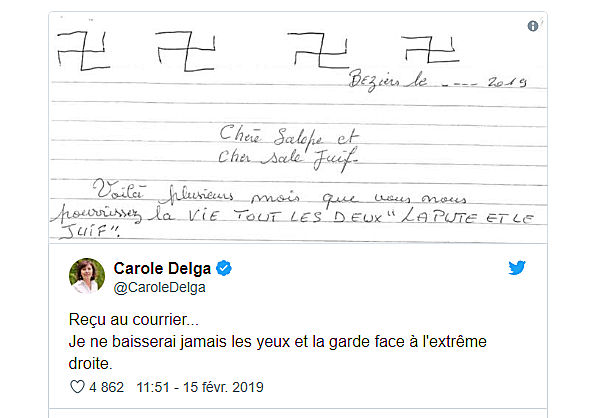 Beziers le ---- 2019
Chère Salope et
Cher sale Juif.
Voilà plusieurs mois que vous nous
pourrissez la VIE TOUT LES DEUX "LA PUTE ET LE
JUIF".
Carole Delga
@CaroleDelga
Reçu au courrier...
Je ne baisserai jamais les yeux et la garde face à l'extrême
droite.
4 862 11:51 - 15 févr. 2019